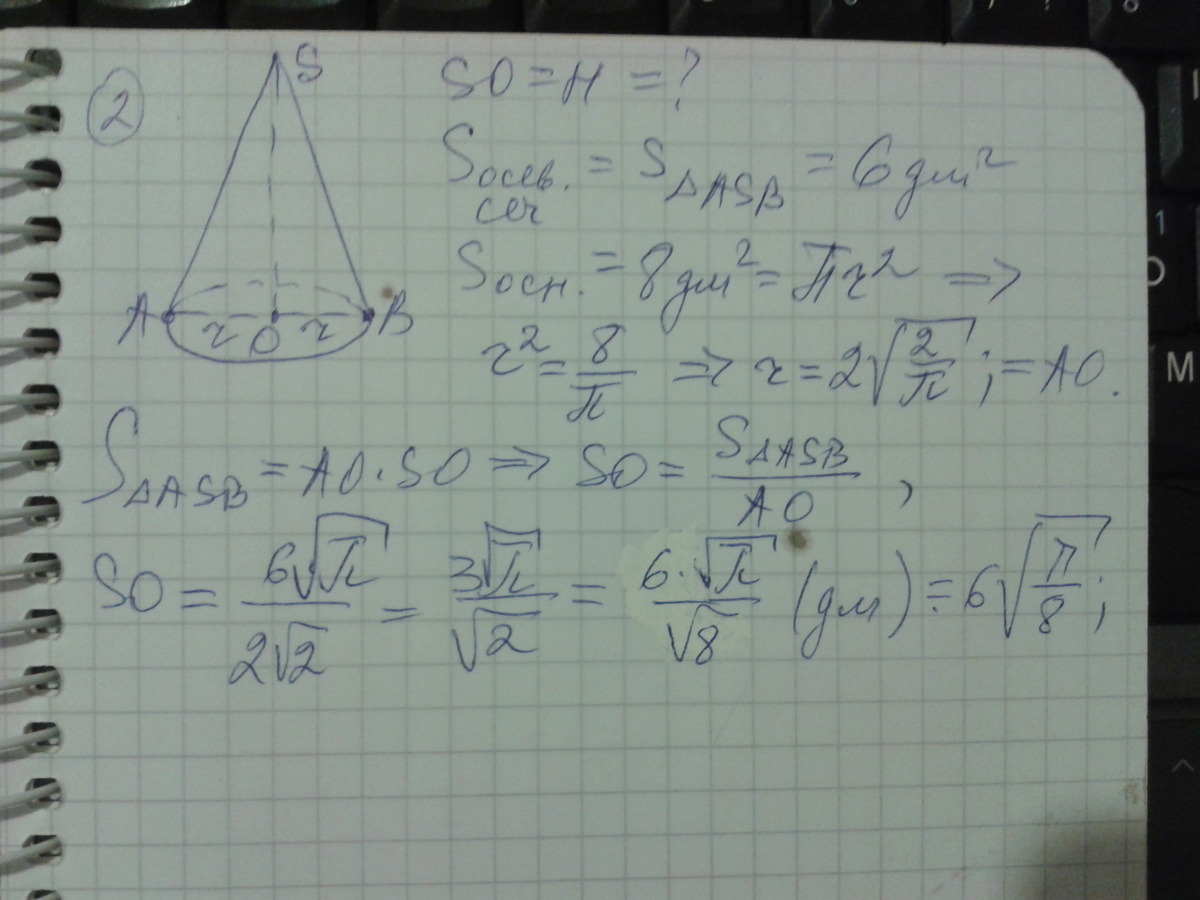 2
S
SO = H = ?
Sосев. сеч = S△ASB = 6 дм²
Sосн. = 8 дм² = πr² ⇒
A r O r B
r² = 8/π ⇒ r = 2√(2/π); = AO.
S△ASB = AO · SO ⇒ SO = S△ASB/AO,
SO = 6√π/2√2 = 3√π/√2 = 6·√π/√8 (дм) = 6√(π/8);